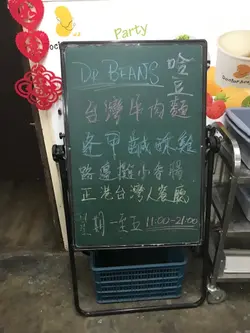 Party
DR BEANS 哈
豆
台灣牛肉麵
逢甲鹹酥雞
路邊攤小香腸
正港台灣人餐廳
星期一至五 11:00-21:00